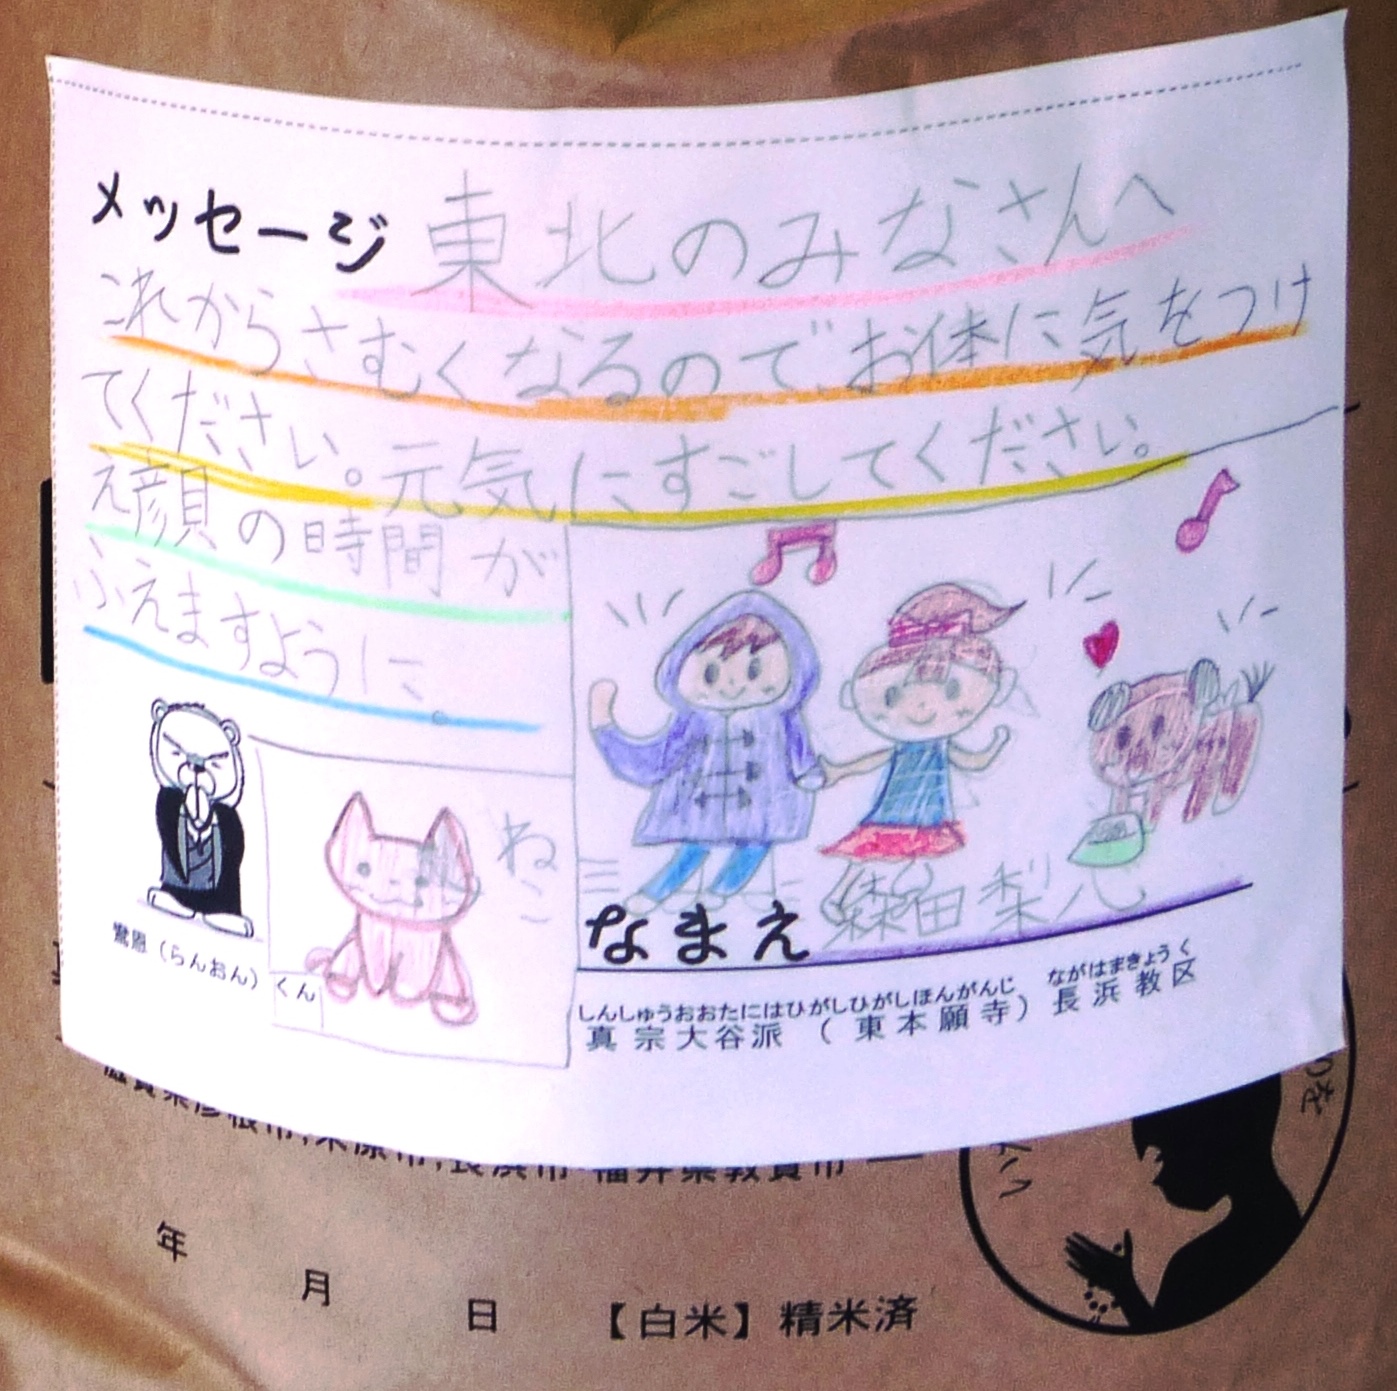 メッセージ 東北のみなさんへ
これからさむくなるのでお体に気をつけ
てください。元気にすごしてください。
え顔の時間が
ふえますように
ねこ
鸞恩（らんおん）くん
なまえ 森田梨心
しんしゅうおおたにはひがしひがしほんがんじ ながはまきょうく
真宗大谷派（東本願寺）長浜教区
滋賀県彦根市,米原市,長浜市 福井県敦賀市
年 月 日 【白米】精米済